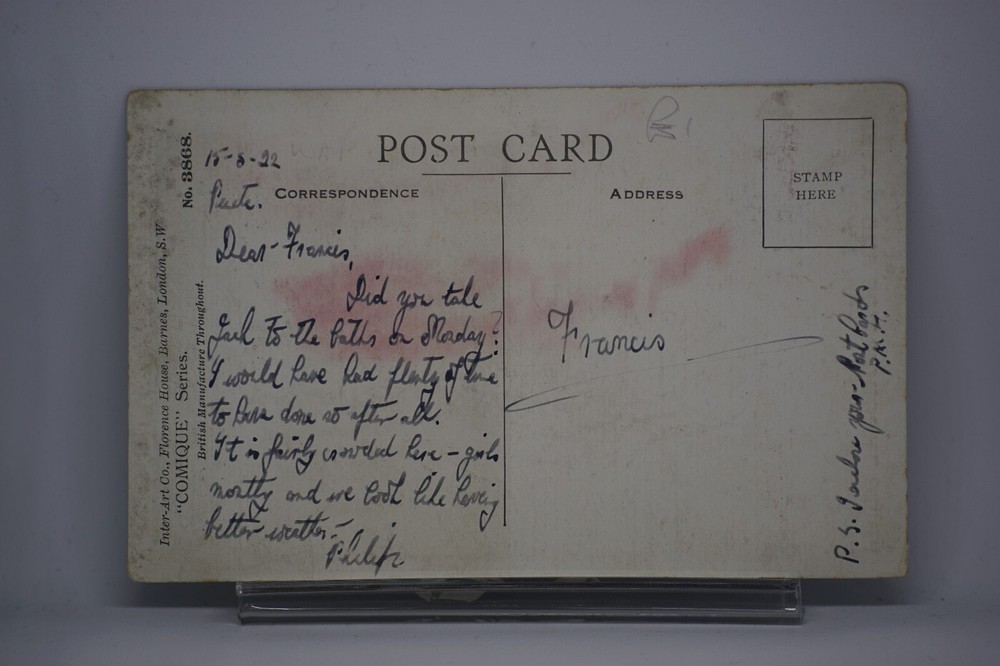 POST CARD
CORRESPONDENCE
ADDRESS
STAMP
HERE
No. 3868.
Inter-Art Co., Florence House, Barnes, London, S.W
"COMIQUE" Series.
British Manufacture Throughout.
15-8-22
Dear Francis,
Did you take
Jack to the baths on Monday?
I would have had plenty of time
to have done so after all.
It is fairly crowded here – girls
mostly and we look like having
better weather.
Philip
Francis
P.S. I your Post Cards
P.K.H.